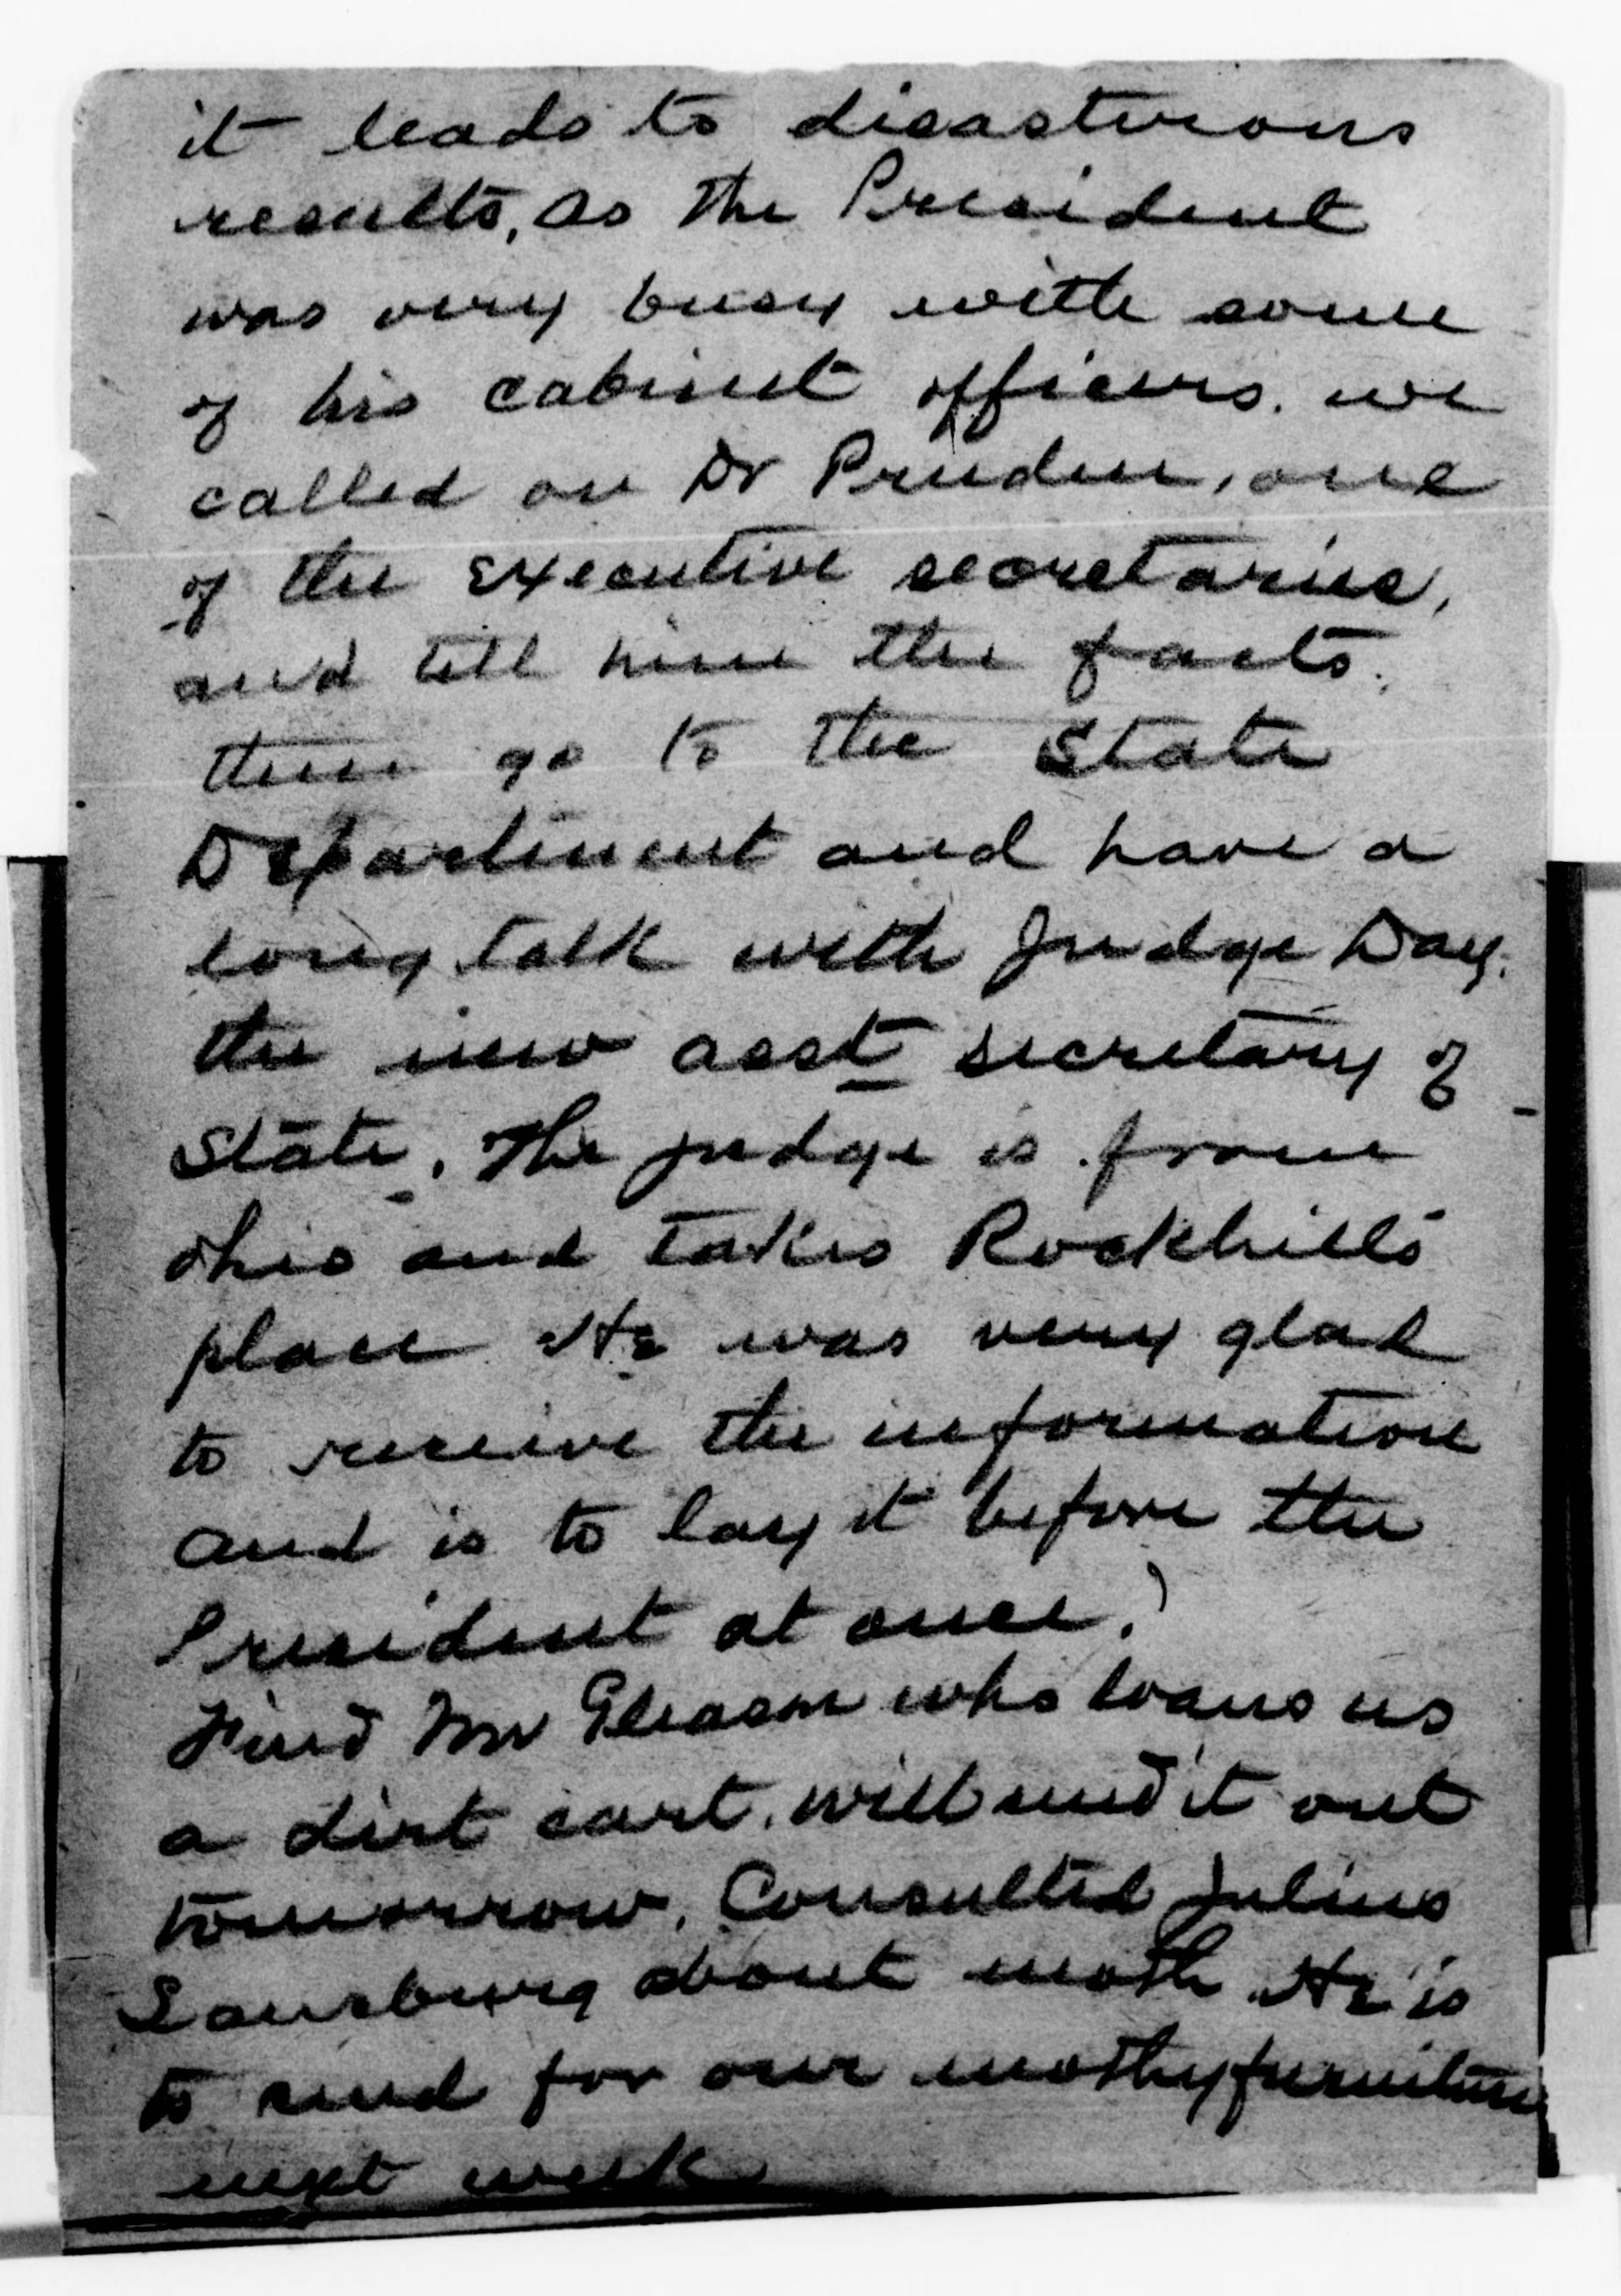 it leads to disasterous
results, as the President
was very busy with some
of his cabinet officers. we
called on Dr Pruden, one
of the executive secretaries,
and tell him the facts.
then go to the State
Department and have a
long talk with Judge Day.
the new asst secretary of
State. The judge is from
Ohio and takes Rockhills
place. He was very glad
to receive the information
and is to lay it before the
President at once.)
Find Mr Gleason who loans us
a dirt cart. will send it out
tomorrow. Consulted Julius
Lansburg about moth He is
to send for our mothy furniture
next week